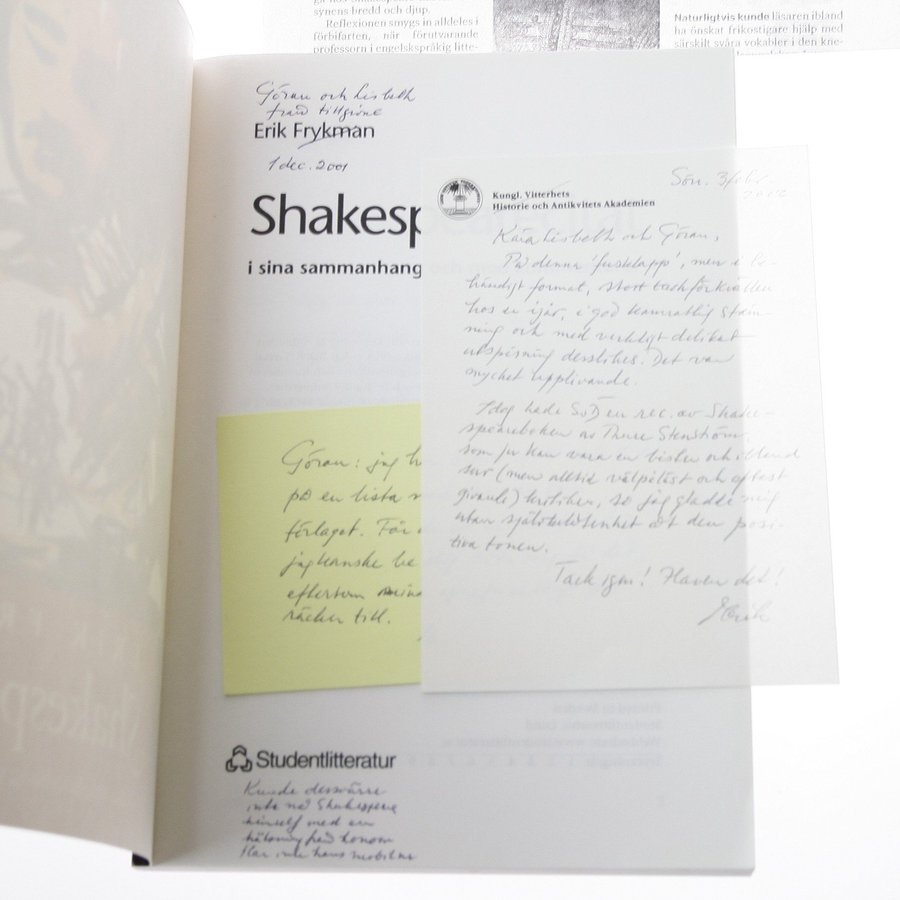 synens bredd och djup.
Reflexionen smygs in alldeles i
förbifarten, när förutvarande
professorn i engelskspråkig litte-
Naturligtvis kunde läsaren ibland
ha önskat frikostigare hjälp med
särskilt svåra vokabler i den kne-
Göran och Lisbeth
från tillgivne
Erik Frykman
1 dec. 2001
Shakesp
i sina sammanhang
Göran: jag
på en lista
förlaget. För
jag kanske be
eftersom mina
räcker till.
Kungl. Vitterhets
Historie och Antikvitets Akademien
Sön. 3/
Kära Lisbeth och Göran,
På denna 'fusklapp', men i be-
händigt format, stort tack för kvällen
hos er igår, i god kamratlig stäm-
ning och med verkligt delikat
utspisning desslikes. Det var
mycket upplivande.
Idag hade SvD en rec. av Shake-
speareboken av Thure Stenström,
som ju kan vara en bister och ibland
sur (men alltid välpåläst och oftast
givande) kritiker, så jag gladde mig
utan självbelåtenhet åt den posi-
tiva tonen.
Tack igen! Haven det!
Erik
Studentlitteratur
Kunde dessvärre
inte nå Shakespeare
himself med en
hälsning från honom
Har inte hans mobilnr
Shakesp